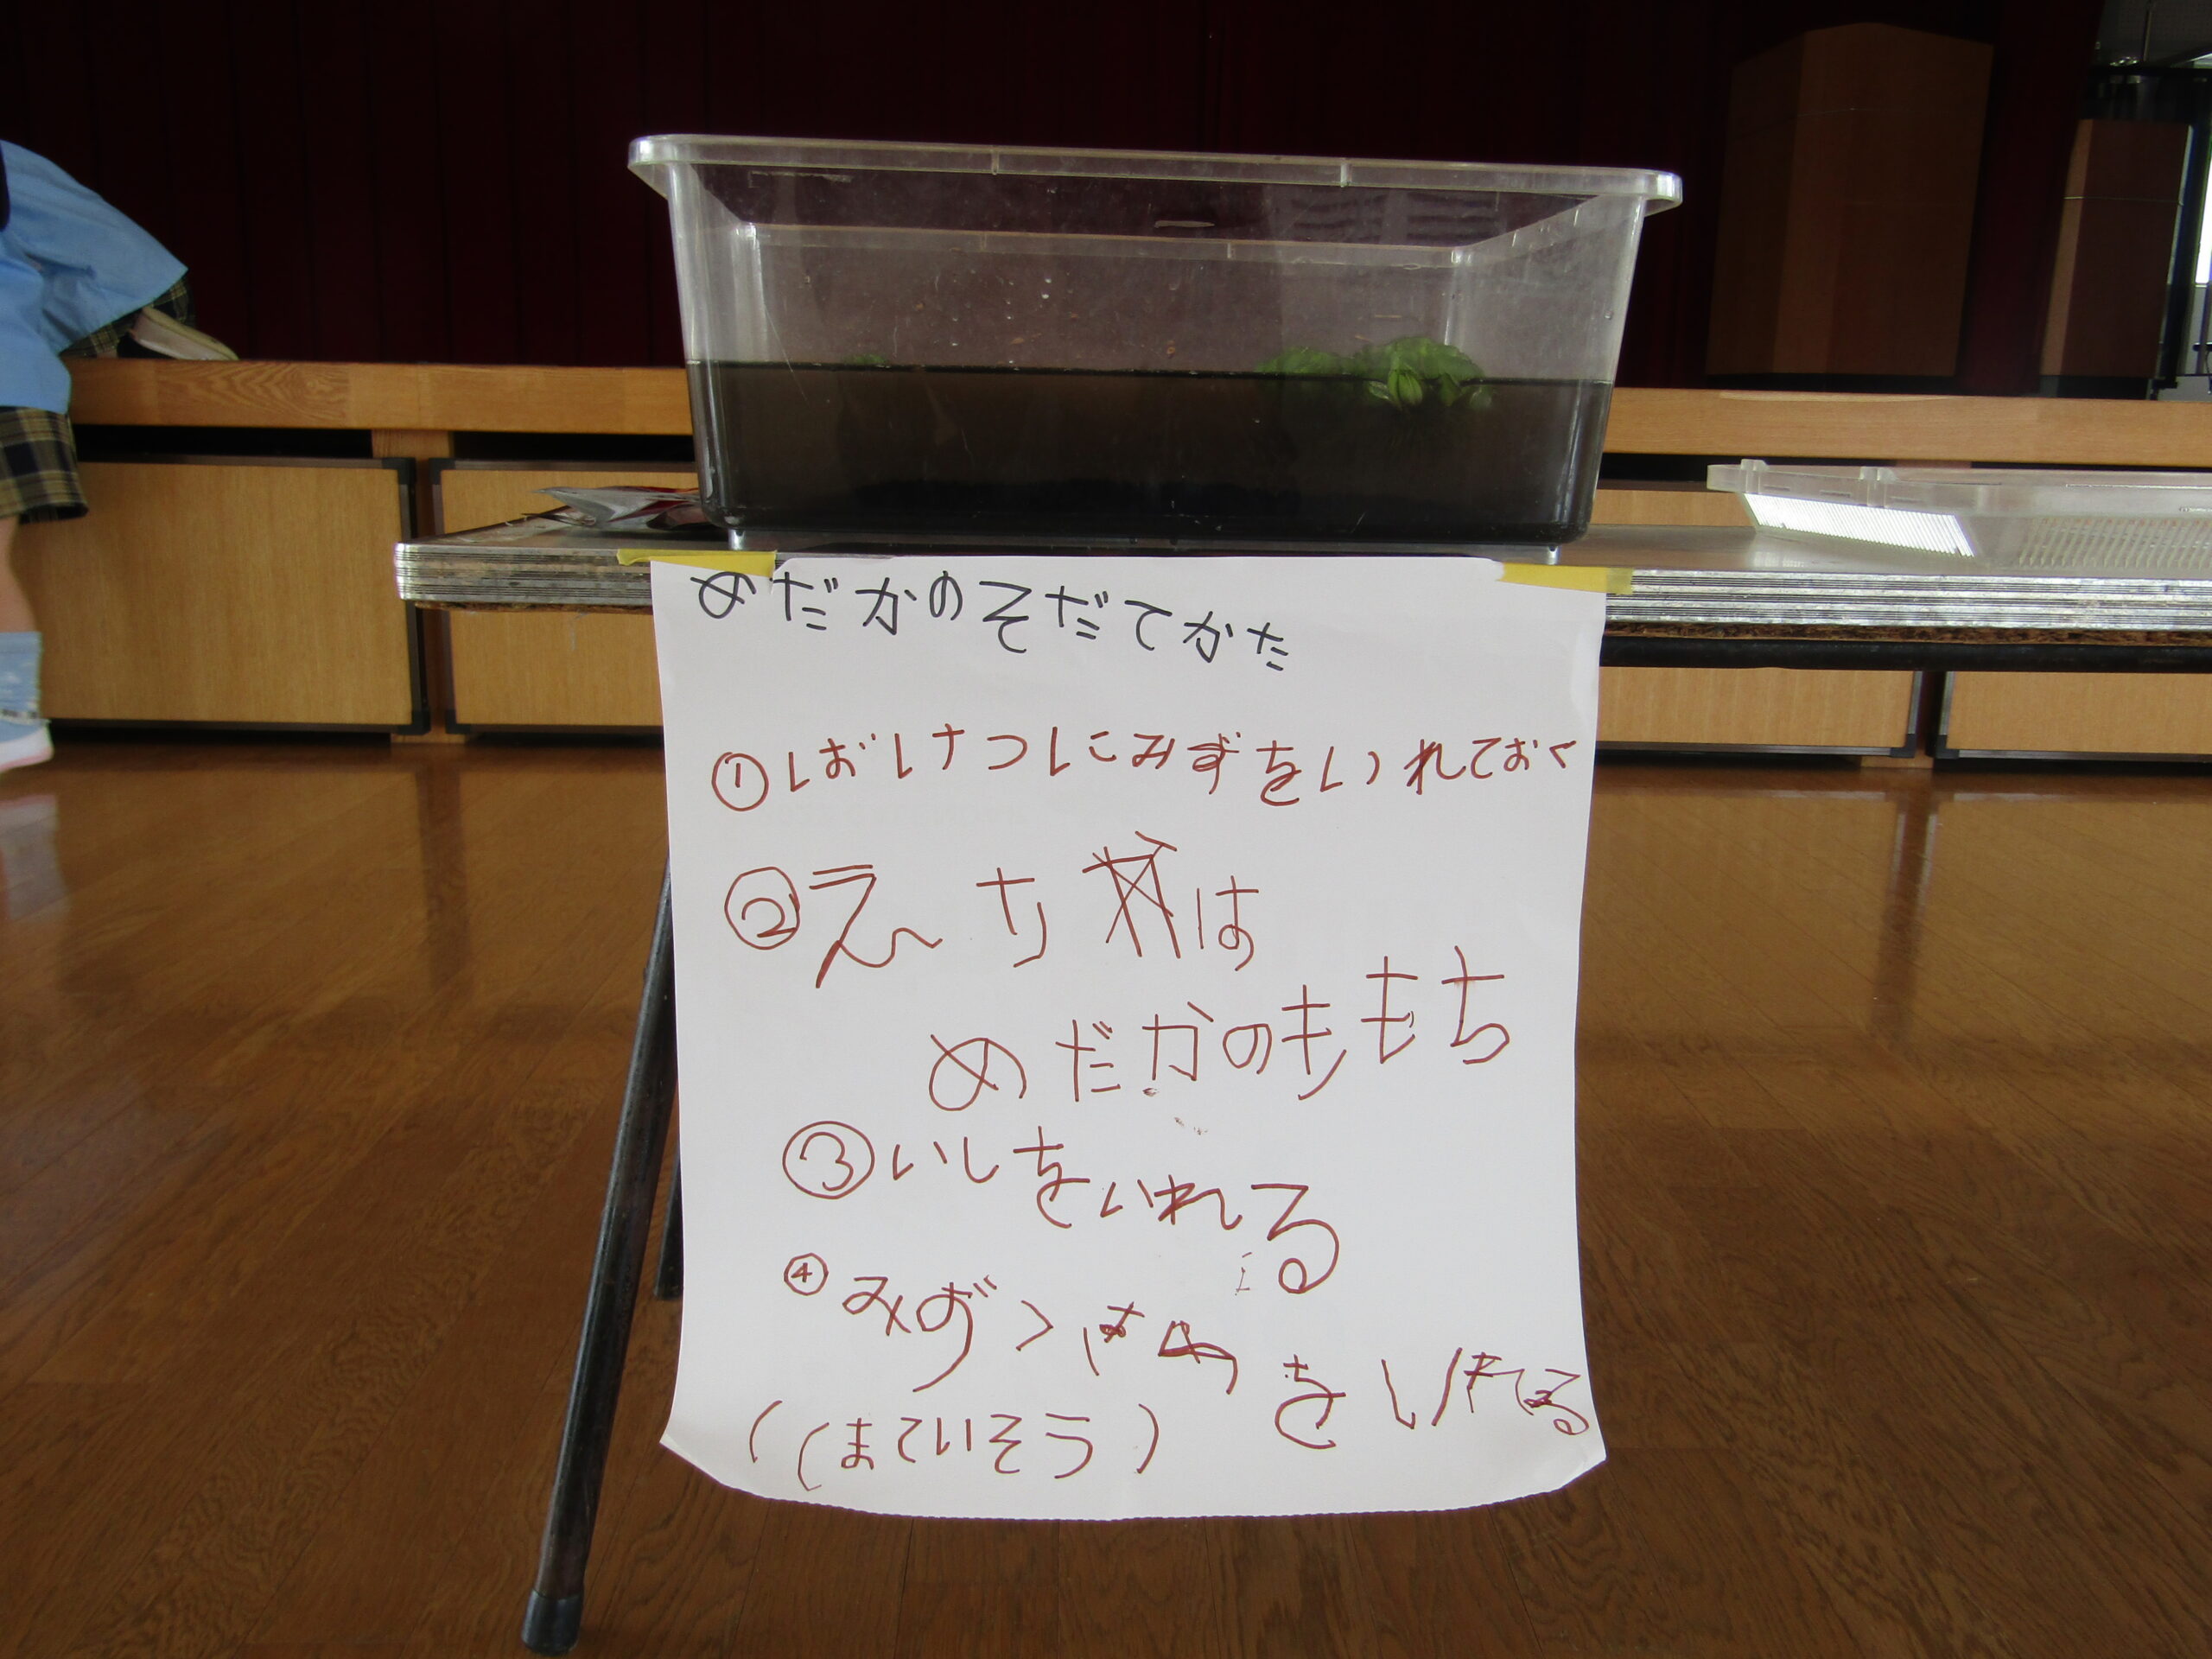 めだかのそだてかた
①ばけつにみずをいれておく
②えさは
めだかのきもち
③いしをいれる
④みずくさ をいれる
(ほていそう)